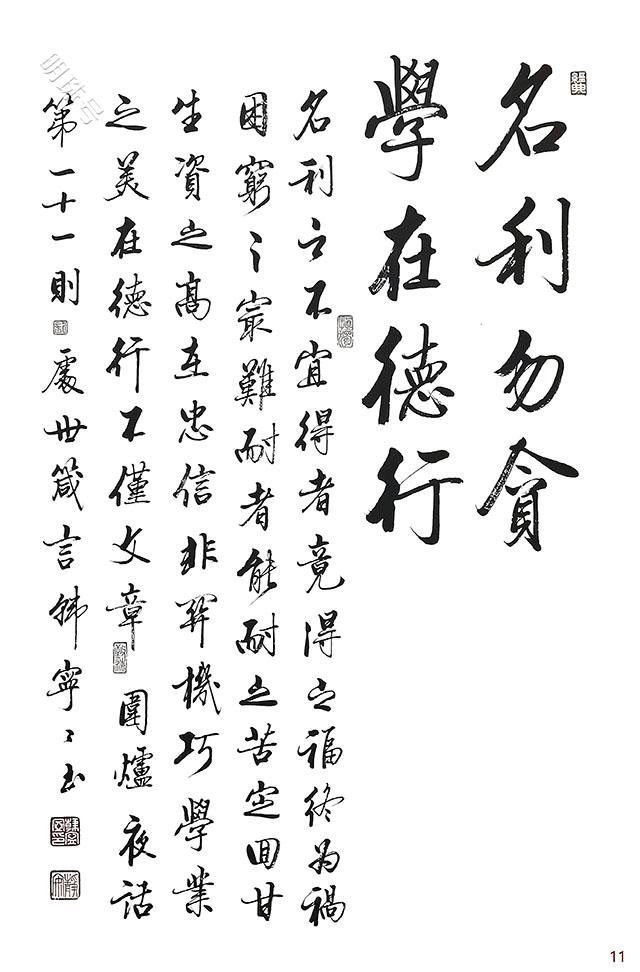 名利勿貪
學在德行
名利之不宜得者竟得之福終為禍
困窮之最難耐者能耐之苦定回甘
生資之高在忠信非關機巧學業
之美在德行不僅文章 圍爐夜話
第一十一則 處世箴言 韩寧〻書
11